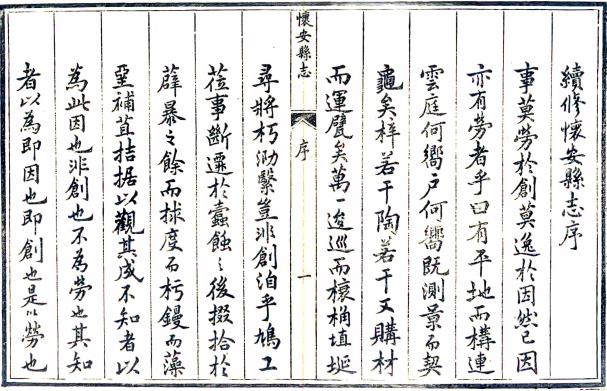 續修懷安縣志序
事莫勞於創莫逸於因然已因
亦有勞者乎曰有平地而構連
雲庭何嚮戶何嚮既測景而契
龜矣梓若干陶若干又購材
而運甓矣萬一逡巡而榱桷埴埏
懷安縣志
序
一
尋將朽泐繄豈非創洎乎鳩工
蒞事斷遷於蠹蝕之後掇拾於
薜暴之餘而捄度而杇鏝而藻
堊補苴拮据以觀其成不知者以
為此因也非創也不為勞也其知
者以為即因也即創也是以勞也